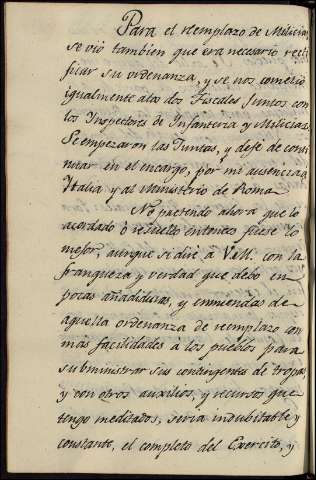 Para el reemplazo de Milicias
se vió tambien que era necesario recti
ficar su ordenanza, y se nos cometió
igualmente a los dos Fiscales juntos con
los Inspectores de Infanteria y Milicias.
Se empezaron las Juntas, y dejé de conti
nuar en el encargo, por mi ausencia a
Italia y al Ministerio de Roma.
No pretendo ahora que lo
acordado ó resuelto entonces fuese lo
mejor, aunque si diré á V.M. con la
franqueza y verdad que debo en
pocas añadiduras, y enmiendas de
aquella ordenanza de reemplazo con
más facilidades á los pueblos para
subministrar sus contingentes de tropas
y con otros auxilios, y recursos que
tengo meditados, seria indubitable y
constante, el completo del Exercito, y